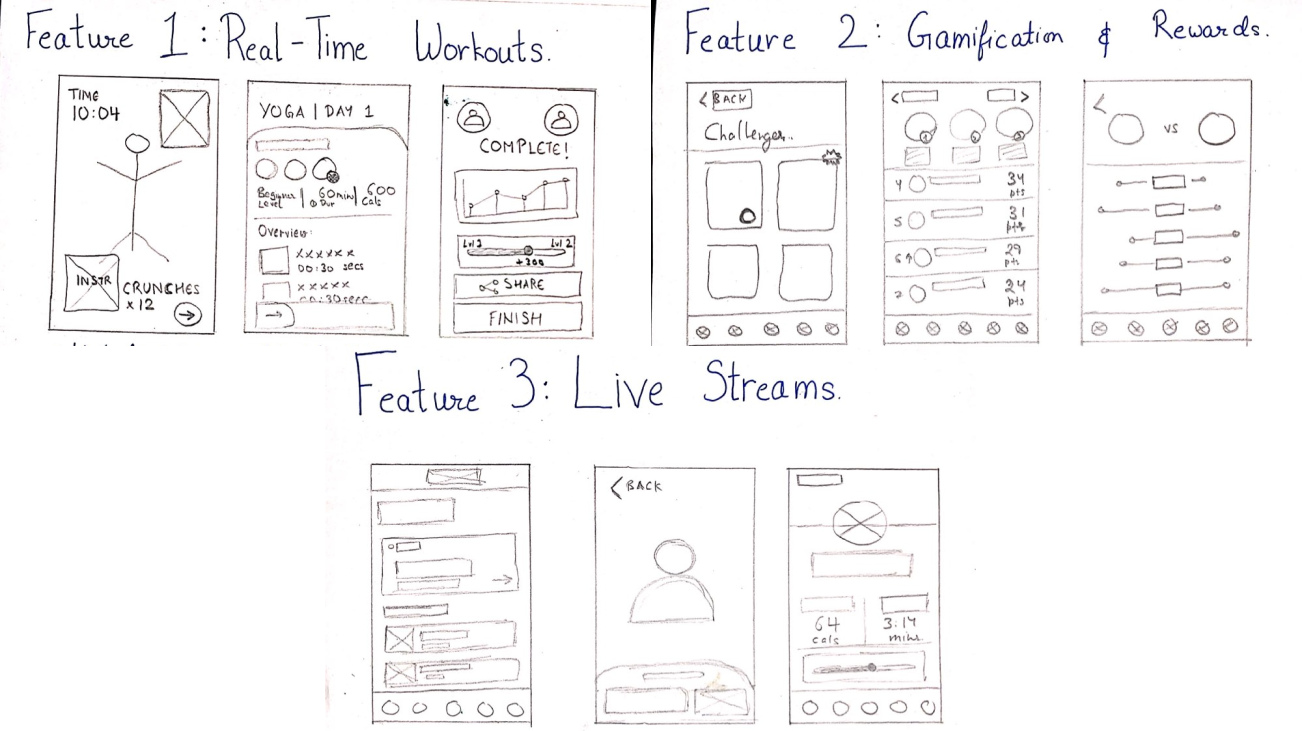 Feature 1: Real-Time Workouts.
TIME
10:04
INSTR
CRUNCHES
x12
YOGA | DAY 1
Beginner | 60min | 600
Level Dur Cals
Overview:
xxxxxx
00:30 secs
xxxxx
00:30secs
COMPLETE!
Lvl 1 Lvl 2
+300
SHARE
FINISH
Feature 2: Gamification & Rewards.
< BACK
Challenges.
< >
1 2 3
4 34
pts
5 31
pts
6 29
pts
24
pts
<
VS
Feature 3: Live Streams.
< BACK
64
cals
3:14
mins